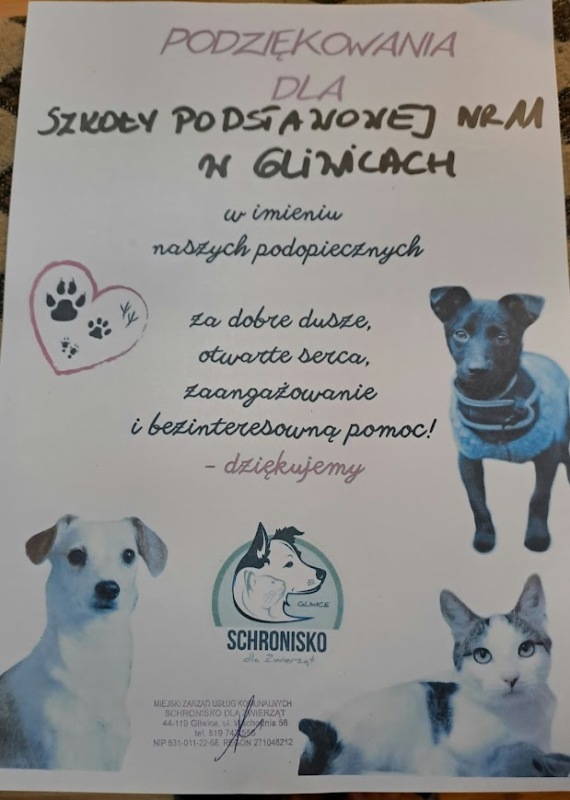 PODZIĘKOWANIA
DLA
SZKOŁY PODSTAWOWEJ NR 11
W GLIWICACH
w imieniu
naszych podopiecznych
za dobre dusze,
otwarte serca,
zaangażowanie
i bezinteresowną pomoc!
- dziękujemy
GLIWICE
SCHRONISKO
dla Zwierząt
MIEJSKI ZARZĄD USŁUG KOMUNALNYCH
SCHRONISKO DLA ZWIERZĄT
44-119 Gliwice, ul. Wschodnia 56
tel. 519
NIP 631-011-22-68, REGON 271048212